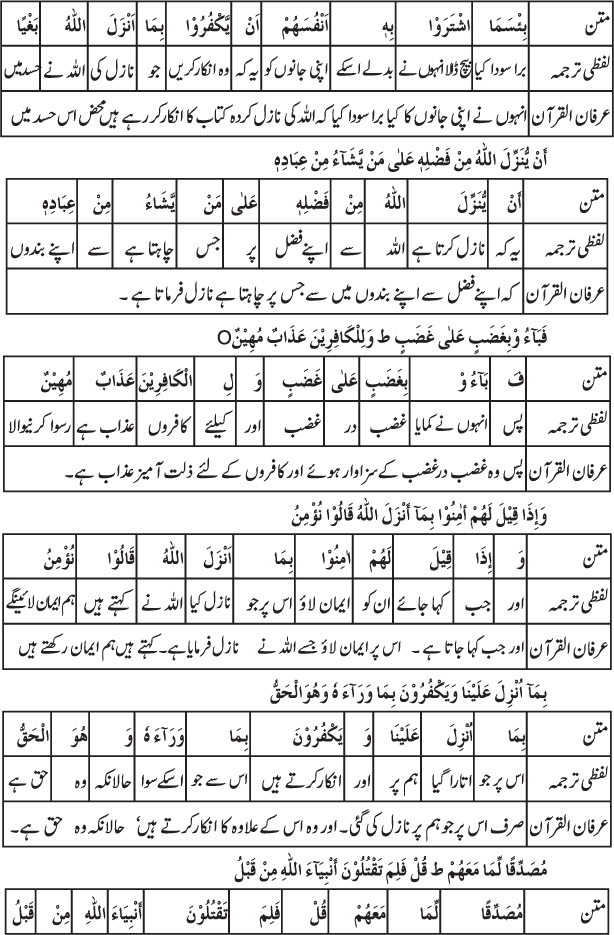 متن بِئْسَمَا اشْتَرَوْا بِهٖ اَنْفُسَهُمْ اَنْ يَّكْفُرُوْا بِمَا اَنْزَلَ اللهُ بَغْيًا
لفظی ترجمہ برا سودا کیا بیچ ڈالا انہوں نے بدلے اسکے اپنی جانوں کو یہ کہ وہ انکار کریں جو نازل کی اللہ نے حسد میں
عرفان القرآن انہوں نے اپنی جانوں کا کیا برا سودا کیا کہ اللہ کی نازل کردہ کتاب کا انکار کر رہے ہیں محض اس حسد میں
أَنْ يُّنَزِّلَ اللهُ مِنْ فَضْلِهٖ عَلٰى مَنْ يَّشَآءُ مِنْ عِبَادِهٖ
متن أَنْ يُّنَزِّلَ اللهُ مِنْ فَضْلِهٖ عَلٰى مَنْ يَّشَاءُ مِنْ عِبَادِهٖ
لفظی ترجمہ یہ کہ نازل کرتا ہے اللہ سے اپنے فضل پر جس چاہتا ہے سے اپنے بندوں
عرفان القرآن کہ اپنے فضل سے اپنے بندوں میں سے جس پر چاہتا ہے نازل فرماتا ہے ۔
فَبَآءُ وْبِغَضَبٍ عَلٰى غَضَبٍ ط وَلِلْكَافِرِيْنَ عَذَابٌ مُهِيْنٌO
متن فَ بَآءُ وْ بِغَضَبٍ عَلٰى غَضَبٍ وَ لِ الْكَافِرِيْنَ عَذَابٌ مُهِيْنٌ
لفظی ترجمہ پس انہوں نے کمایا غضب در غضب اور کیلئے کافروں عذاب ہے رسوا کرنیوالا
عرفان القرآن پس وہ غضب در غضب کے سزاوار ہوئے اور کافروں کے لئے ذلت آمیز عذاب ہے۔
وَإِذَا قِيْلَ لَهُمْ اٰمِنُوْا بِمَآ أَنْزَلَ اللهُ قَالُوْا نُؤْمِنُ
متن وَ إِذَا قِيْلَ لَهُمْ اٰمِنُوْا بِمَا اَنْزَلَ اللهُ قَالُوْا نُؤْمِنُ
لفظی ترجمہ اور جب کہا جائے ان کو ایمان لاؤ اس پر جو نازل کیا اللہ نے کہتے ہیں ہم ایمان لائینگے
عرفان القرآن اور جب کہا جاتا ہے ۔ اس پر ایمان لاؤ جسے اللہ نے نازل فرمایا ہے۔ کہتے ہیں ہم ایمان رکھتے ہیں
بِمَآ اُنْزِلَ عَلَيْنَا وَيَكْفُرُوْنَ بِمَا وَرَآءَ هٗ وَهُوَ الْحَقُّ
متن بِمَا اُنْزِلَ عَلَيْنَا وَ يَكْفُرُوْنَ بِمَا وَرَآءَ هٗ وَ هُوَ الْحَقُّ
لفظی ترجمہ اس پر جو اتارا گیا ہم پر اور انکار کرتے ہیں اس سے جو اسکے سوا حالانکہ وہ حق ہے
عرفان القرآن صرف اس پر جو ہم پر نازل کی گئی۔ اور وہ اس کے علاوہ کا انکار کرتے ہیں‘ حالانکہ وہ حق ہے۔
مُصَدِّقًا لِّمَا مَعَهُمْ ط قُلْ فَلِمَ تَقْتُلُوْنَ أَنْبِيَآءَ اللهِ مِنْ قَبْلُ
متن مُصَدِّقًا لِّمَا مَعَهُمْ قُلْ فَلِمَ تَقْتُلُوْنَ أَنْبِيَاءَ اللهِ مِنْ قَبْلُ